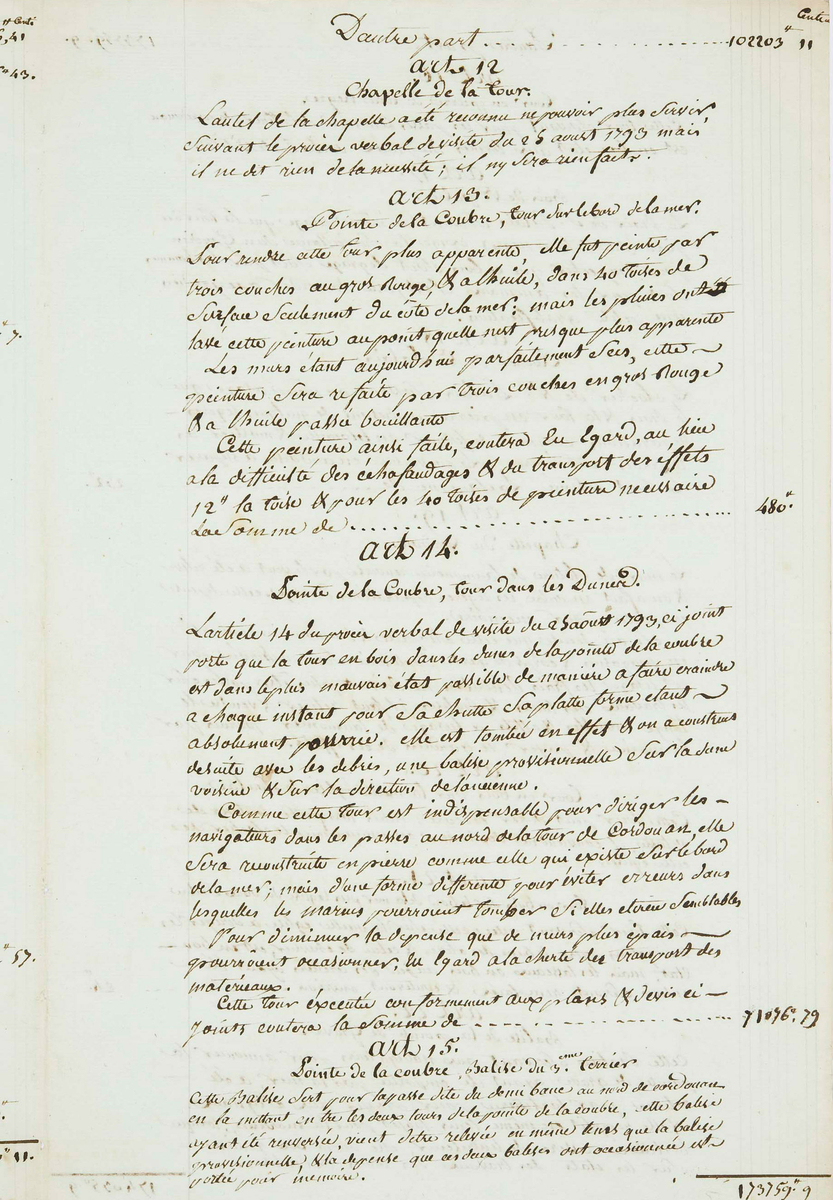 # Centi
5,41
43.
7.
57.
11.
Centim
D'autre part . . . . . . . . . . . . . . 102203# 11
art. 12
Chapelle de la tour.
L'autel de la chapelle a été reconnu ne pouvoir plus servir,
suivant le procès verbal de visite du 25 aoust 1793 mais
il ne dit rien de la necessité; il n'y sera rien faite.
art. 13.
Pointe de la Coubre, tour sur le bord de la mer.
Pour rendre cette tour plus apparente, elle fut peinte par
trois couches au gros Rouge & a l'huile, dans 40 toises de
surface seulement du côté de la mer; mais les pluies ont
lavé cette peinture au point quelle n'est presque plus apparente
Les murs étant aujourd'hui parfaitement secs, cette
peinture sera refaite par trois couches en gros Rouge
& a l'huile passée bouillante
Cette peinture ainsi faite, coutera Eu Egard, au lieu
a la difficulté des échafaudages & du transport des effets
12# la toise & pour les 40 toises de peinture necessaire
La somme de . . . . . . . . . . . . . . 480#
art 14.
Pointe de la Coubre, tour dans les Dunes.
L'article 14 du procès verbal de visite du 25 aoust 1793, ci joint
porte que la tour en bois dans les dunes de la pointe de la coubre
est dans le plus mauvais état possible de manière a faire craindre
a chaque instant pour sa chutte sa platte forme etant
absolument pourrie. elle est tombée en effet & on a construit
de suite avec les debris, une balise provisionnelle sur la dune
voisine & sur la direction de l'ancienne.
Comme cette tour est indispensable pour diriger les
navigateurs dans les passes au nord de la tour de Cordouan, elle
sera reconstruite en pierre comme celle qui existe sur le bord
de la mer; mais d'une forme differente pour éviter erreurs dans
lesquelles les marins pourroient tomber si elles etoien semblables
Pour diminuer la depense que de murs plus épais
pourroient occasionner, Eu Egard a la cherté des transport des
matériaux.
Cette tour éxécutée conformement aux plans & devis ci
joints coutera la somme de . . . . . . . . 71076# 79
art 15.
Pointe de la coubre, Balise du 3.eme terrier
Cette Balise sert pour la passe dite du demi banc au nord de cordouan
en la mettant entre les deux tours de la pointe de la coubre, cette balise
ayant été renversée, vient d'etre relevée en même tems que la balise
provisionnelle, & la depense que ces deux balises ont occasionnée est
portée pour memoire.
173759# 9